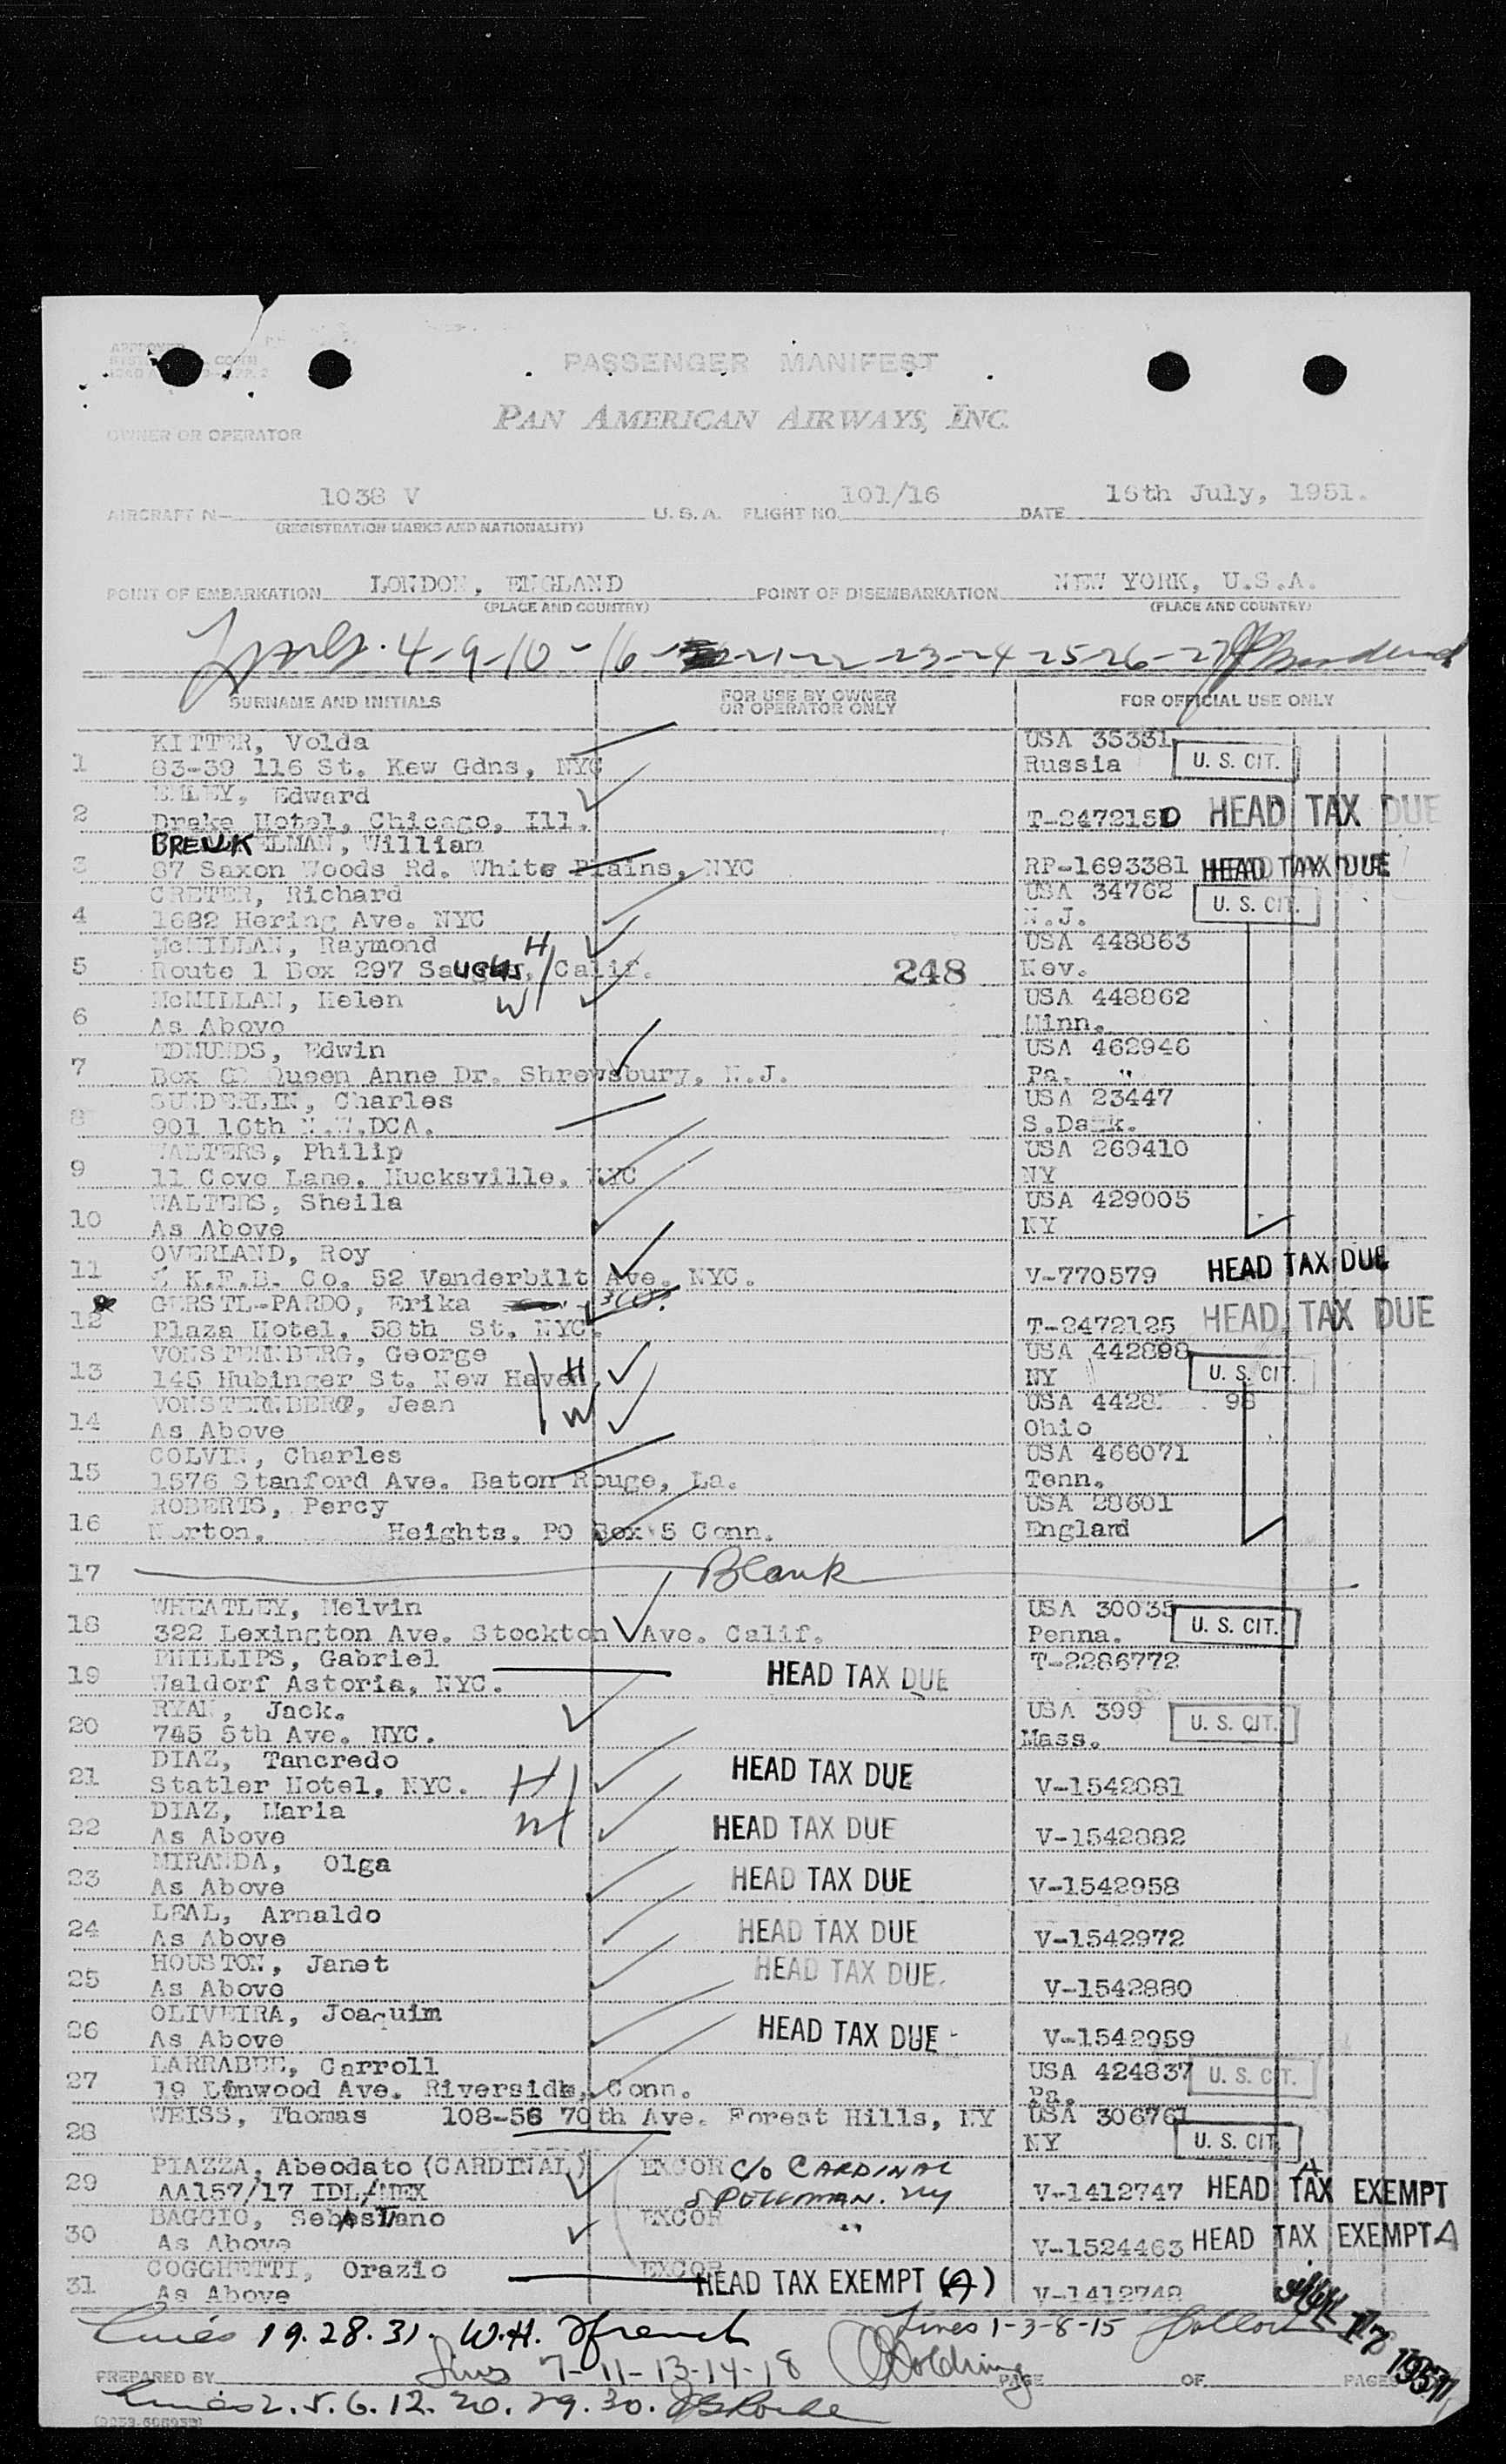 APPROVED
PASSENGER MANIFEST
PAN AMERICAN AIRWAYS, INC.
OWNER OR OPERATOR
AIRCRAFT N— 1038 V U.S.A. FLIGHT NO. 101/16 DATE 16th July, 1951.
(REGISTRATION MARKS AND NATIONALITY)
POINT OF EMBARKATION LONDON, ENGLAND POINT OF DISEMBARKATION NEW YORK, U.S.A.
(PLACE AND COUNTRY) (PLACE AND COUNTRY)
4-9-10-16- -21-22-23-24-25-26-27
SURNAME AND INITIALS FOR USE BY OWNER OR OPERATOR ONLY FOR OFFICIAL USE ONLY
KITTER, Volda USA 35331
1 83-39 116 St. Kew Gdns, NYC Russia U. S. CIT.
Edward
2 Drake Hotel, Chicago, Ill. T-2472150 HEAD TAX DUE
William
3 87 Saxon Woods Rd. White Plains, NYC RP-1693381 HEAD TAX DUE
CRETER, Richard USA 34762
4 1682 Hering Ave. NYC N.J. U. S. CIT.
McMILLAN, Raymond H USA 448863
5 Route 1 Box 297 Saugus, Calif. 248 Nev.
McMILLAN, Helen W USA 448862
6 As Above Minn.
EDMUNDS, Edwin USA 462946
7 Box Queen Anne Dr. Shrewsbury, N.J. Pa. "
SUNDERLIN, Charles USA 23447
8 901 16th N.W.DCA. S.Dak.
WALTERS, Philip USA 269410
9 11 Cove Lane, Hucksville, NYC NY
WALTERS, Sheila USA 429005
10 As Above NY
OVERLAND, Roy
11 K.F.B. Co. 52 Vanderbilt Ave. NYC. V-770579 HEAD TAX DUE
GERSTL-PARDO, Erika
12 Plaza Hotel, 58th St. NYC. T-2472125 HEAD TAX DUE
VONSTERNBERG, George USA 442898
13 145 Hubinger St. New Haven, H NY U. S. CIT.
VONSTERNBERG, Jean USA 4428 98
14 As Above W Ohio
COLVIN, Charles USA 466071
15 1576 Stanford Ave. Baton Rouge, La. Tenn.
ROBERTS, Percy USA 28601
16 Heights, PO Box 5 Conn. England
17 Blank
WHEATLEY, Melvin USA 30035
18 322 Lexington Ave. Stockton Ave. Calif. Penna. U. S. CIT.
PHILLIPS, Gabriel T-2286772
19 Waldorf Astoria, NYC. HEAD TAX DUE
RYAN, Jack. USA 399
20 745 5th Ave. NYC. Mass. U. S. CIT.
DIAZ, Tancredo
21 Statler Hotel, NYC. H HEAD TAX DUE V-1542881
DIAZ, Maria
22 As Above W HEAD TAX DUE V-1542882
MIRANDA, Olga
23 As Above HEAD TAX DUE V-1542958
LEAL, Arnaldo
24 As Above HEAD TAX DUE V-1542972
HOUSTON, Janet
25 As Above HEAD TAX DUE. V-1542880
OLIVEIRA, Joaquim
26 As Above HEAD TAX DUE V-1542959
LARRABEE, Carroll USA 424837
27 19 Linwood Ave. Riverside, Conn. Pa. U. S. CIT.
WEISS, Thomas 108-56 70th Ave. Forest Hills, NY USA 306761
28 NY U. S. CIT.
PIAZZA, Abeodato (CARDINAL) EXCOR c/o CARDINAL
29 AA157/17 IDL/MEX SPELLMAN. NY V-1412747 HEAD TAX EXEMPT A
BAGGIO, Sebastiano EXCOR "
30 As Above V-1524463 HEAD TAX EXEMPT A
COGGHETTI, Orazio EXCOR
31 As Above HEAD TAX EXEMPT (A) V-1412748
Lines 19.28.31. W.H. French Lines 1-3-8-15 17 1951
Lines 7-11-13-14-18
PREPARED BY PAGE OF PAGES
Lines 2.5.6.12.20.29.30.